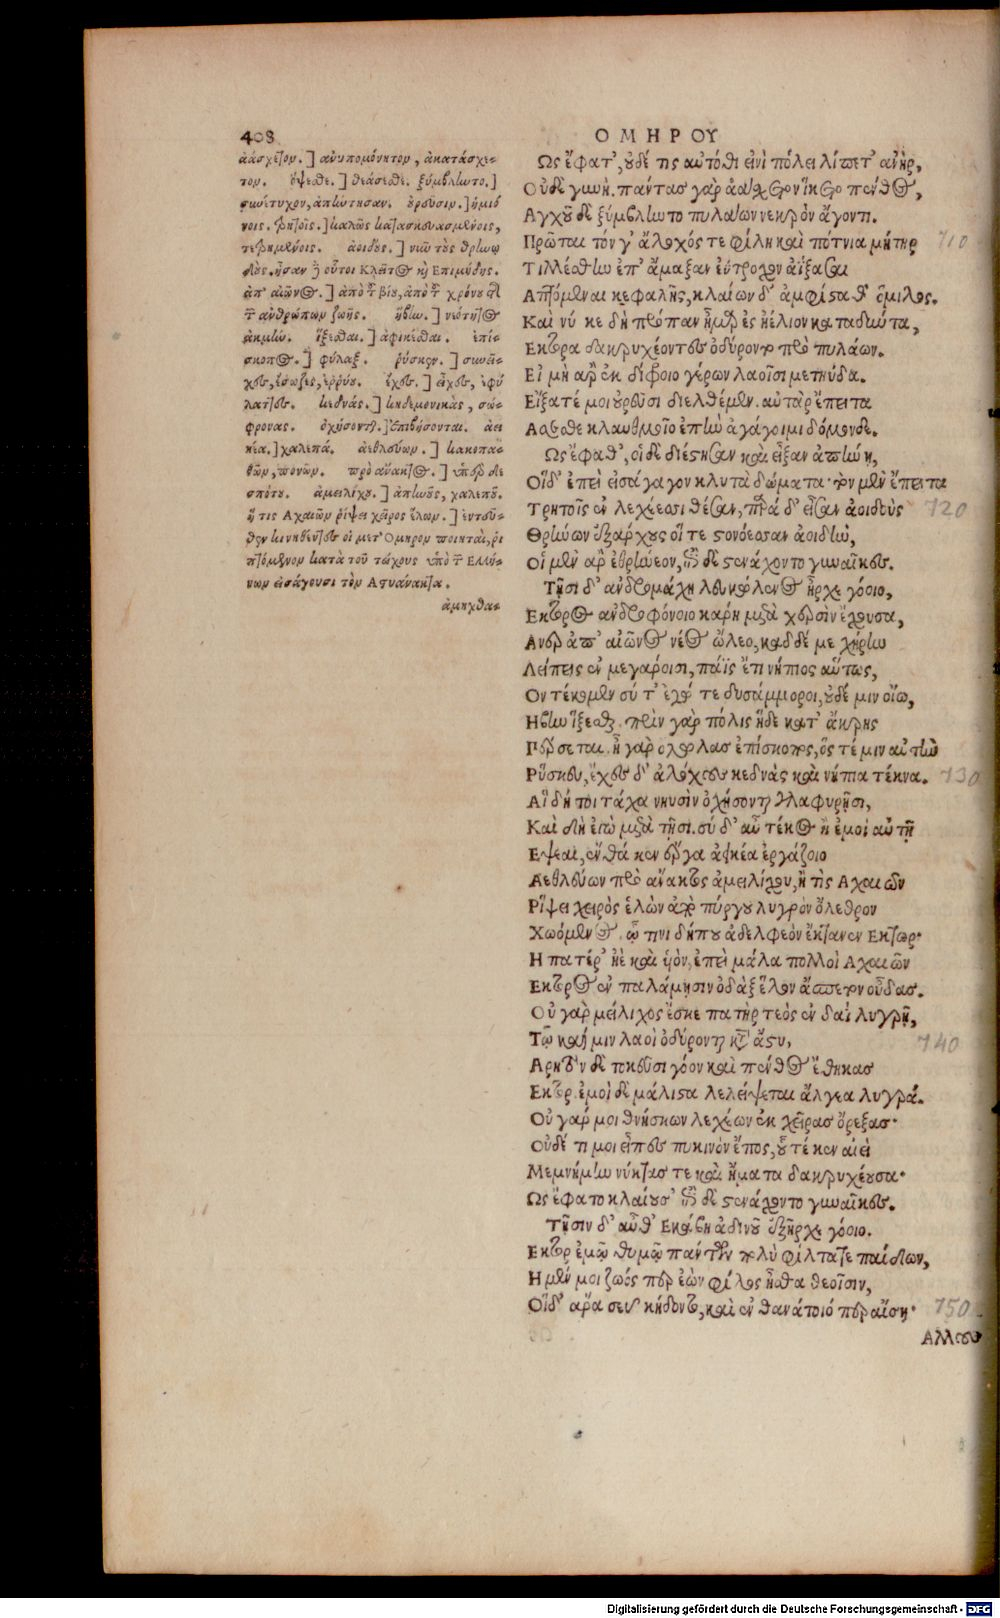 408
ΟΜΗΡΟΥ
ἀάσχετον.] ἀνυπομόνητον, ἀκατάσχε-
τον. ὄψεσθε.] θεάσεσθε. ξύμβλωτο.]
συνέτυχον, ἀπήντησαν. οὐρεῦσιν.] ἡμιό
νοις. τρητοῖς.] καλῶς κατασκευασμένοις,
τετρημένοις. ἀοιδούς.] τοὺς θρηνῳ
δούς. ἦσαν δὲ οὗτοι Κλεῖτος καὶ Ἐπιμύδης.
ἀπ' αἰῶνος.] ἀπὸ τοῦ βίου, ἀπὸ τοῦ χρόνου
τῶν ἀνθρώπων ζωῆς. ἥβην.] νεότητος
ἀκμήν. ἵξεσθαι.] ἀφικέσθαι. ἐπί-
σκοπος.] φύλαξ. ῥύσκευ.] συνεῖ-
χες, ἔσωζες, ἐρρύου. ἔχες.] εἶχες, ἐφύ
λαττες. κεδνάς.] κηδεμονικὰς, σώ-
φρονας. ὀχήσονται.] ἐπιβήσονται. ἀει
κέα.] χαλεπά. ἀεθλεύων.] κακοπα-
θῶν, πονῶν. πρὸ ἄνακτος.] ὑπὲρ δε
σπότου. ἀμειλίχου.] ἀπηνοῦς, χαλεποῦ.
ἤ τις Ἀχαιῶν ῥίψει χειρὸς ἑλών.] ἐντεῦ-
θεν κινηθέντες οἱ μετ' Ὅμηρον ποιηταὶ, ῥι
πτόμενον κατὰ τοῦ τείχους ὑπὸ τῶν Ἑλλή-
νων εἰσάγουσι τὸν Ἀστυάνακτα.
ἀμηχθα-
Ως ἔφατ', οὐδέ τις αὐτόθι ἐνὶ πόλει λίπετ' ἀνὴρ,
Οὐδὲ γυνή. πάντας γὰρ ἀάσχετον ἵκετο πένθος,
Ἀγχοῦ δὲ ξύμβλωντο πυλάων νεκρὸν ἄγοντι.
Πρῶται τόν γ' ἄλοχός τε φίλη καὶ πότνια μήτηρ 710
Τιλλέσθην ἐπ' ἄμαξαν ἐΰτροχον ἀΐξασαι
Ἁπτόμεναι κεφαλῆς, κλαίων δ' ἀμφίσταθ' ὅμιλος.
Καὶ νύ κε δὴ πρόπαν ἦμαρ ἐς ἠέλιον καταδύντα,
Ἕκτορα δακρυχέοντες ὀδύροντο πρὸ πυλάων.
Εἰ μὴ ἄρ' ἐκ δίφροιο γέρων λαοῖσι μετηύδα.
Εἴξατέ μοι οὐρεῦσι διελθέμεν. αὐτὰρ ἔπειτα
Ἄσεσθε κλαυθμοῖο ἐπὴν ἀγάγοιμι δόμονδε.
Ὣς ἔφαθ', οἱ δὲ διέστησαν καὶ εἶξαν ἀπήνῃ,
Οἵδ' ἐπεὶ εἰσάγαγον κλυτὰ δώματα. τὸν μὲν ἔπειτα
Τρητοῖς ἐν λεχέεσσι θέσαν, παρὰ δ' εἷσαν ἀοιδοὺς 720
Θρήνων ἐξάρχους οἵ τε στονόεσσαν ἀοιδὴν,
Οἱ μὲν ἄρ' ἐθρήνεον, ἐπὶ δὲ στενάχοντο γυναῖκες.
Τῇσι δ' ἀνδρομάχη λευκώλενος ἦρχε γόοιο,
Ἕκτορος ἀνδροφόνοιο κάρη μετὰ χερσὶν ἔχουσα,
Ἄνερ ἀπ' αἰῶνος νέος ὤλεο, καδδέ με χήρην
Λείπεις ἐν μεγάροισι, πάϊς ἔτι νήπιος αὔτως,
Ὃν τέκομεν σύ τ' ἐγώ τε δυσάμμοροι, οὐδέ μιν οἴω,
Ἥβην ἵξεσθαι. πρὶν γὰρ πόλις ἥδε κατ' ἄκρης
Πέρσεται. ἦ γὰρ ὄλωλας ἐπίσκοπος, ὅς τέ μιν αὐτὴν
Ῥύσκευ, ἔχες δ' ἀλόχους κεδνὰς καὶ νήπια τέκνα. 730
Αἳ δή τοι τάχα νηυσὶν ὀχήσονται γλαφυρῇσι,
Καὶ δὴ ἐγὼ μετὰ τῇσι. σύ δ' αὖ τέκος ἢ ἐμοὶ αὐτῇ
Ἕψεαι, ἔνθά κεν ἔργα ἀεικέα ἐργάζοιο
Ἀεθλεύων πρὸ ἄνακτος ἀμειλίχου, ἤ τὶς Ἀχαιῶν
Ῥίψει χειρὸς ἑλὼν ἀπὸ πύργου λυγρὸν ὄλεθρον
Χωόμενος. ᾧ τινι δήπου ἀδελφεὸν ἔκτανεν Ἕκτωρ.
Ἢ πατέρ' ἠὲ καὶ υἱόν, ἐπεὶ μάλα πολλοὶ Ἀχαιῶν
Ἕκτορος ἐν παλάμῃσιν ὀδὰξ ἕλον ἄσπετον οὖδας.
Οὐ γὰρ μείλιχος ἔσκε πατὴρ τεὸς ἐν δαῒ λυγρῇ,
Τῷ καί μιν λαοὶ ὀδύρονται κατὰ ἄστυ, 740
Ἀρητὸν δὲ τοκεῦσι γόον καὶ πένθος ἔθηκας
Ἕκτορ. ἐμοὶ δὲ μάλιστα λελείψεται ἄλγεα λυγρά.
Οὐ γάρ μοι θνήσκων λεχέων ἐκ χεῖρας ὄρεξας.
Οὐδέ τί μοι εἶπες πυκινὸν ἔπος, οὗ τέ κεν αἰεὶ
Μεμνήμην νύκτας τε καὶ ἤματα δακρυχέουσα.
Ὣς ἔφατο κλαίουσ' ἐπὶ δὲ στενάχοντο γυναῖκες.
Τῇσιν δ' αὖθ' Ἑκάβη ἀδινοῦ ἐξῆρχε γόοιο.
Ἕκτορ ἐμῷ θυμῷ πάντων πολὺ φίλτατε παίδων,
Ἦ μέν μοι ζωός περ ἐὼν φίλος ἦσθα θεοῖσιν,
Οἵδ' ἄρα σεῦ κήδοντο, καὶ ἐν θανάτοιό περ αἴσῃ. 750
Ἄλλους
Digitalisierung gefördert durch die Deutsche Forschungsgemeinschaft - DFG